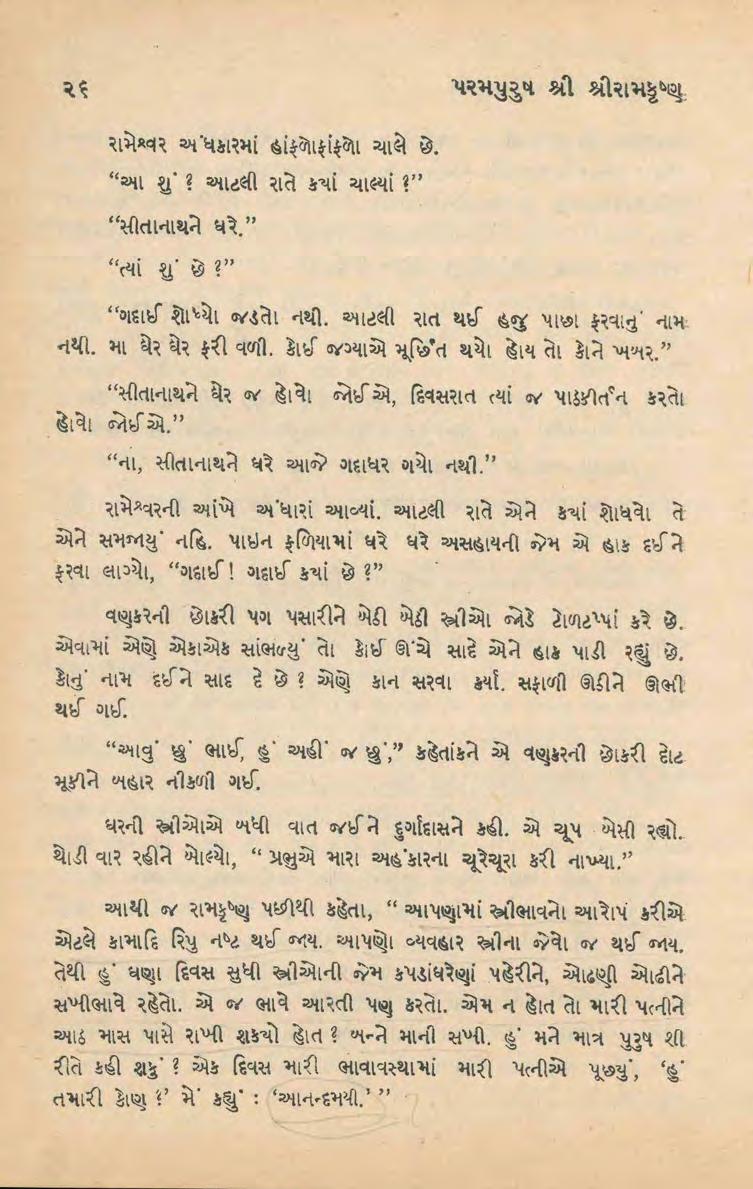 ૨૬ પરમપુરુષ શ્રી શ્રીરામકૃષ્ણ
રામેશ્વર અંધકારમાં હાંફળોફાંફળો ચાલે છે.
“આ શું ? આટલી રાતે કયાં ચાલ્યાં ?”
“સીતાનાથને ઘરે.”
“ત્યાં શું છે ?”
“ગદાઈ શોધ્યો જડતો નથી. આટલી રાત થઈ હજુ પાછા ફરવાનું નામ
નથી. મા ઘેર ઘેર ફરી વળી. કોઈ જગ્યાએ મૂર્છિત થયો હોય તો કોને ખબર.”
“સીતાનાથને ઘેર જ હોવો જોઈએ, દિવસરાત ત્યાં જ પાઠકીર્તન કરતો
હોવો જોઈએ.”
“ના, સીતાનાથને ઘરે આજે ગદાધર ગયો નથી.”
રામેશ્વરની આંખે અંધારાં આવ્યાં. આટલી રાતે એને કયાં શોધવો તે
એને સમજાયું નહિ. પાઇન ફળિયામાં ઘરે ઘરે અસહાયની જેમ એ હાક દઈને
ફરવા લાગ્યો, “ગદાઈ ! ગદાઈ કયાં છે ?”
વણકરની છોકરી પગ પસારીને બેઠી બેઠી સ્ત્રીઓ જોડે ટોળટપ્પાં કરે છે.
એવામાં એણે એકાએક સાંભળ્યું તો કોઈ ઊંચે સાદે એને હાક પાડી રહ્યું છે.
કોનું નામ દઈને સાદ દે છે ? એણે કાન સરવા કર્યા. સફાળી ઊઠીને ઊભી
થઈ ગઈ.
“આવું છું ભાઈ, હું અહીં જ છું,” કહેતાંકને એ વણકરની છોકરી દોટ
મૂકીને બહાર નીકળી ગઈ.
ઘરની સ્ત્રીઓએ બધી વાત જઈને દુર્ગાદાસને કહી. એ ચૂપ બેસી રહ્યો.
થોડી વાર રહીને બોલ્યો, “ પ્રભુએ મારા અહંકારના ચૂરેચૂરા કરી નાખ્યા.”
આથી જ રામકૃષ્ણ પછીથી કહેતા, “ આપણામાં સ્ત્રીભાવનો આરોપ કરીએ
એટલે કામાદિ રિપુ નષ્ટ થઈ જાય. આપણો વ્યવહાર સ્ત્રીના જેવો જ થઈ જાય.
તેથી હું ઘણા દિવસ સુધી સ્ત્રીઓની જેમ કપડાંઘરેણાં પહેરીને, ઓઢણી ઓઢીને
સખીભાવે રહેતો. એ જ ભાવે આરતી પણ કરતો. એમ ન હોત તો મારી પત્નીને
આઠ માસ પાસે રાખી શકયો હોત ? બન્ને માની સખી. હું મને માત્ર પુરુષ શી
રીતે કહી શકું ? એક દિવસ મારી ભાવાવસ્થામાં મારી પત્નીએ પૂછયું, ‘હું
તમારી કોણ ?’ મેં કહ્યું : ‘આનન્દમયી.’ ”